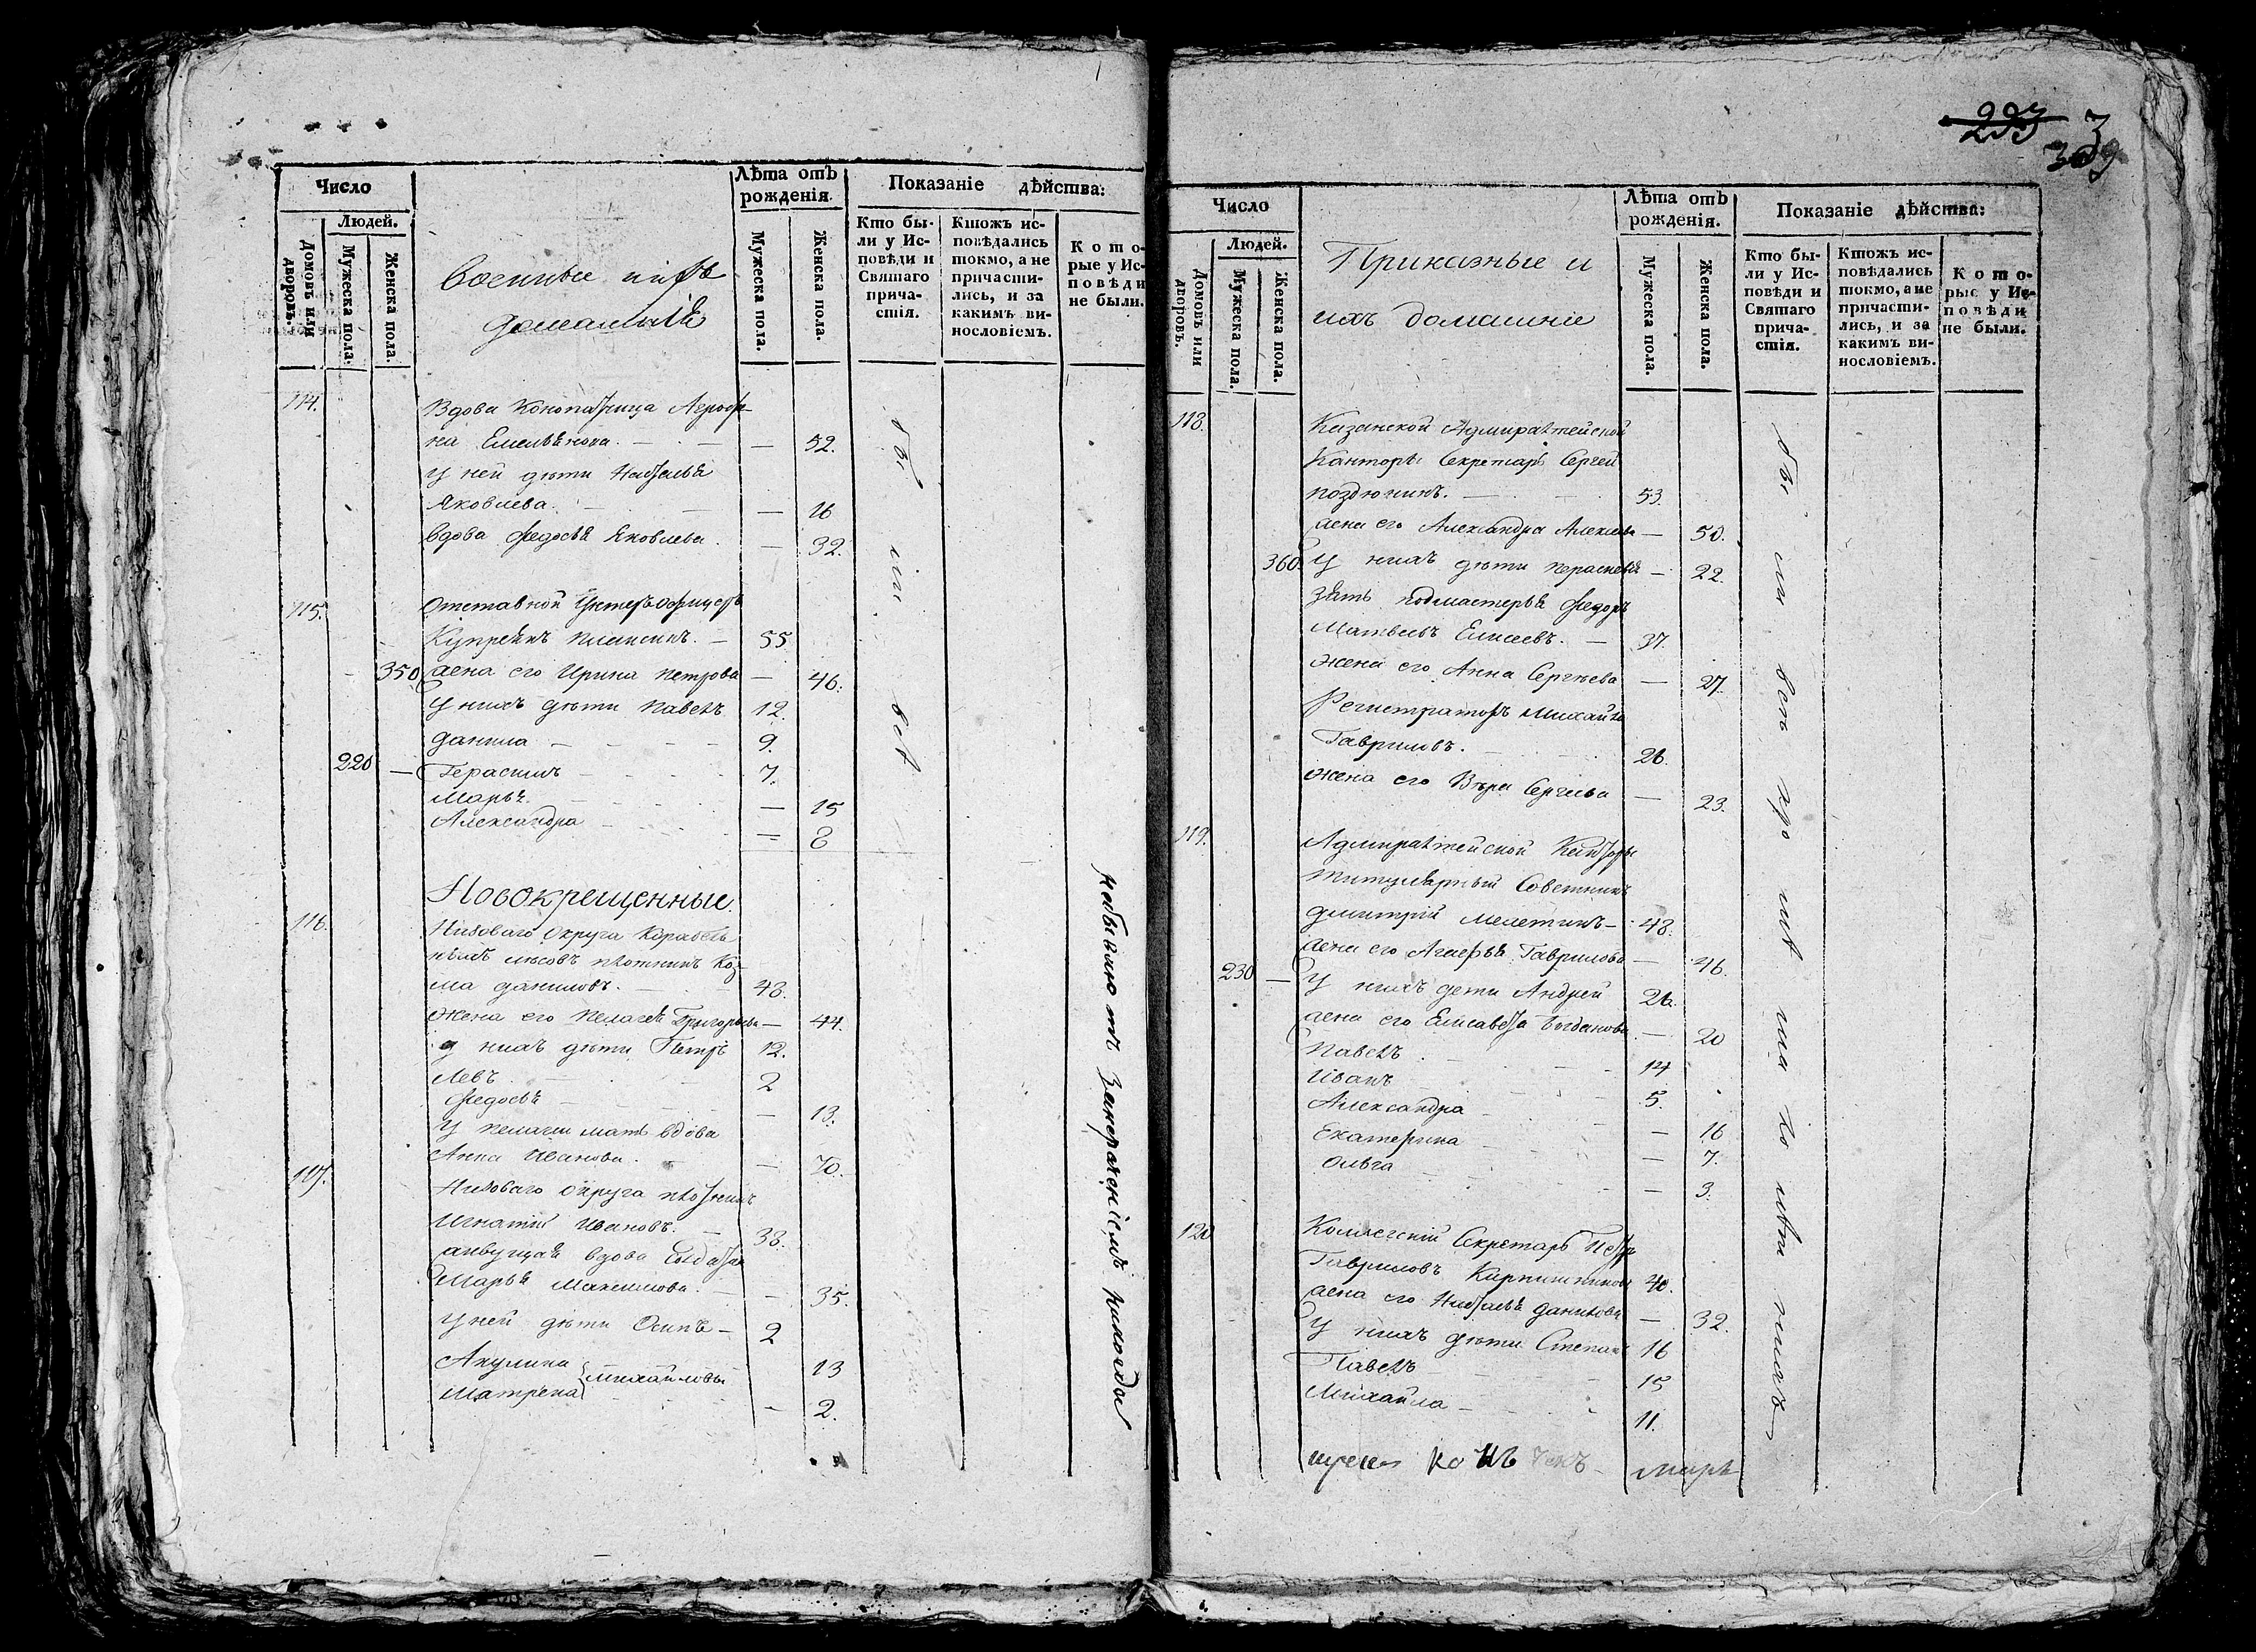 Число
Людей.
Домовъ или дворовъ.
Мужеска пола.
Женска пола.
Военные и ихъ
домашніе
Лѣта отъ рожденія.
Мужеска пола.
Женска пола.
Показаніе дѣйства:
Кто бы-
ли у Ис-
повѣди и
Святаго
прича-
стія.
Ктожъ ис-
повѣдались
токмо, а не
причасти-
лись, и за
какимъ ви-
нословіемъ.
Кото-
рые у Ис-
повѣди
не были.
114. Вдова Конопатчица Агрофе-
на Емельянова. — 52.
у ней дѣти Наталья
Яковлева. — 16
вдова Федосья Яковлева. — 32.
115. Отставной Унтеръ офицеръ
55
350 жена его Ирина Петрова — 46.
у нихъ дѣти Павелъ 12.
Данила 9.
220 — Герасимъ 7.
Марья — 15
Александра — 8
Новокрещенные
116. Низоваго округа Корабель
ныхъ лѣсовъ плотникъ Коз-
ма Даниловъ. 48.
жена его Пелагея Григорьева — 44.
у нихъ дѣти Петръ 12.
Левъ 2
Федосья — 13.
у Пелагеи мать вдова
Анна Иванова. — 70.
117. Низоваго округа плотникъ
Игнатій Ивановъ. 38.
живущая вдова солдатка
Марья Максимова. — 35.
у ней дѣти Осипъ — 2
Акулина } Михайловы 13
Матрена — 2.
бы
ли
всѣ
никогда
293
Число
Людей.
Домовъ или дворовъ.
Мужеска пола.
Женска пола.
Приказные и
ихъ домашніе
Лѣта отъ рожденія.
Мужеска пола.
Женска пола.
Показаніе дѣйства:
Кто бы-
ли у Ис-
повѣди и
Святаго
прича-
стія.
Ктожъ ис-
повѣдались
токмо, а не
причасти-
лись, и за
какимъ ви-
нословіемъ.
Кото-
рые у Ис-
повѣди
не были.
118. Казанской Адмиралтейской
Канторы Секретарь Сергей
Поздюнинъ. 53.
жена его Александра Алексѣева — 50.
360. у нихъ дѣти Парасковья — 22.
Зять подмастерья Федоръ
Матвеевъ Елисеевъ. 37.
жена его Анна Сергѣева — 27.
Регистраторъ Михайла
Гавриловъ. 26.
жена его Вѣра Сергѣева — 23.
119. Адмиралтейской Канторы
Титулярный Советникъ
Дмитрій Мелетинъ — 48.
жена его Агафья Гаврилова — 46.
230 — у нихъ дети Андрей 26.
жена его Елисавета Богданова — 20
Павелъ 14
Иванъ 5.
Александра — 16
Екатерина — 7.
Ольга — 3.
120 Коллежскій Секретарь Петръ
Гавриловъ Кирпишниковъ 40.
жена его Наталья Данилова — 32.
у нихъ дѣти Степанъ 16
Павелъ 15
Михайла 11.
бы
ли
всѣ